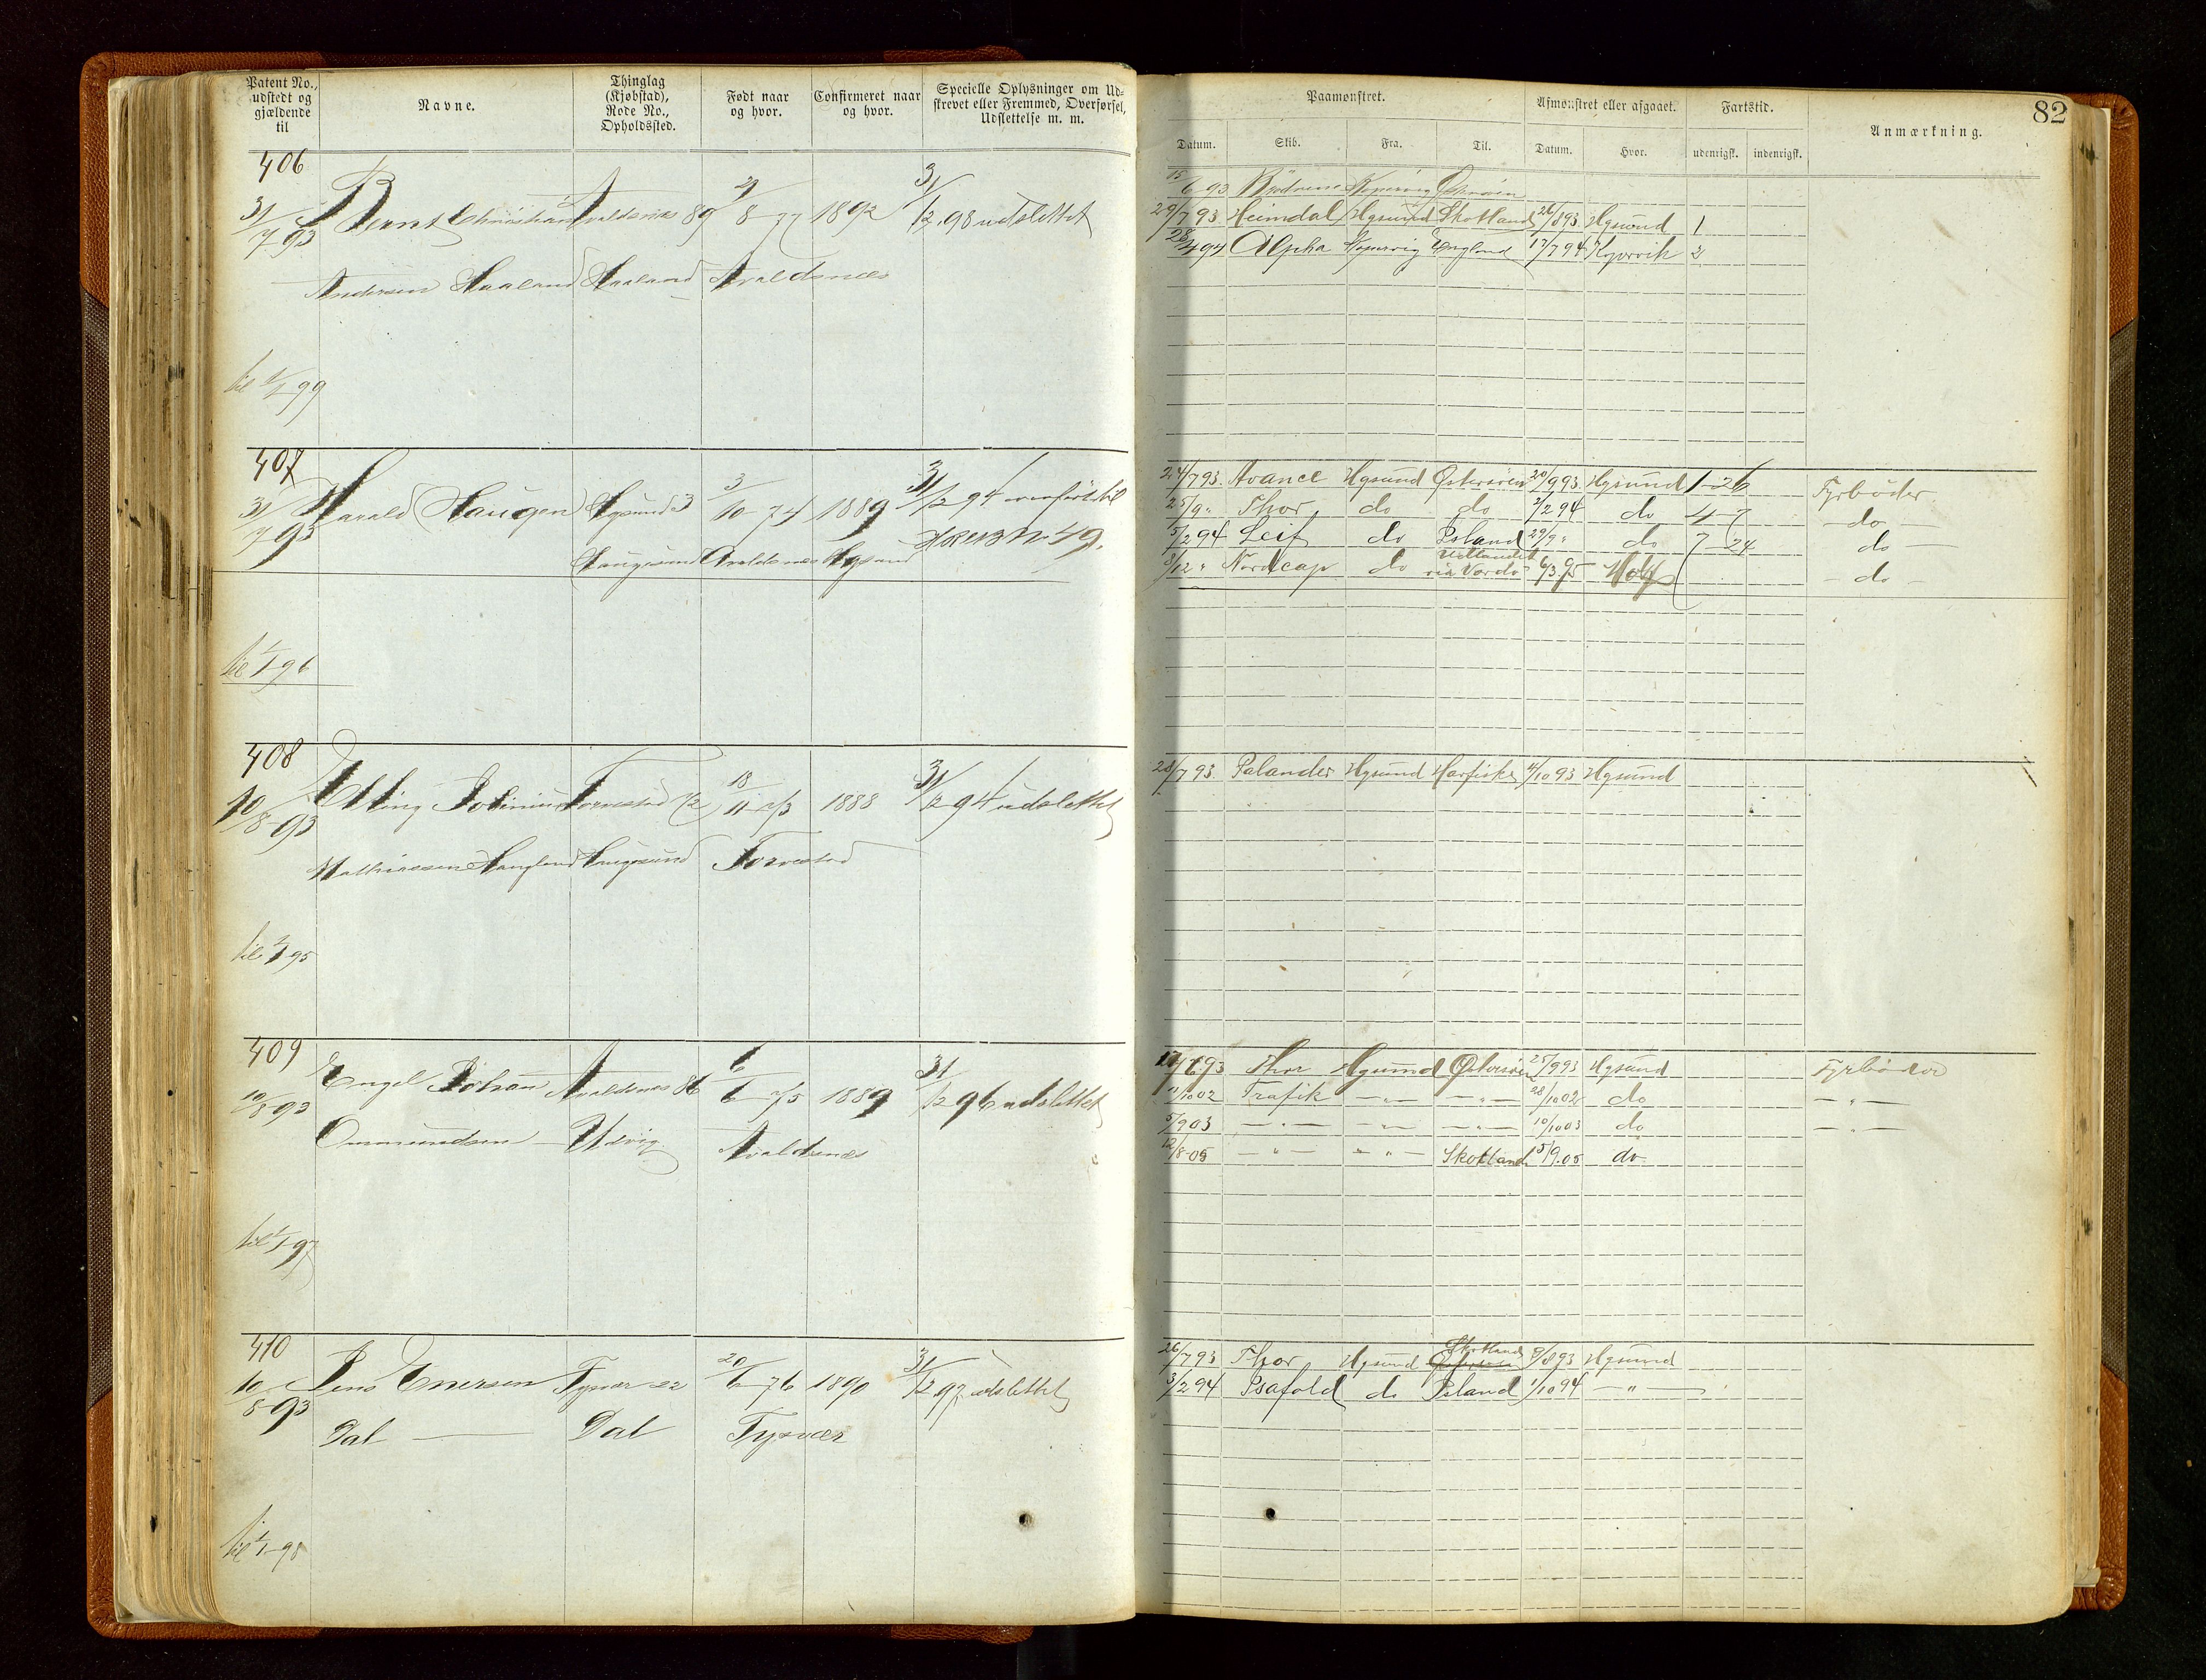 Patent No., udstedt og gjældende til
Navne.
Thinglag (Kjøbstad), Rode No., Opholdssted.
Født naar og hvor.
Confirmeret naar og hvor.
Specielle Oplysninger om Udskrevet eller Fremmed, Overførsel, Udslettelse m. m.
406
31/7 93 Bernt Christian Avaldsnæs 89 29/8-77 1892 31/12 98 udslettet
Andersen Haaland Haaland Avaldsnæs
til 1/1 99
407
31/7 93 Harald Haugen Hgsund 3 3/10-74 1889 31/12 94 overført til
Haugesund Avaldsnæs Hgsund No 49.
til 1/1-96
408
10/8-93 Elling Torvestad 18/11 1888 31/12 94 udslettet
Mathiassen Haugland Haugesund Torvestad
til 1/1 95
409
10/8 93 Engel Johan Avaldsnæs 86 6/6-75 1889 31/12 96 udslettet
Ommundsen Utvig Avaldsnæs
til 1/1-97
410
10/8-93 Jens Enersen Tysvær 22 20/6-76 1890 31/12 97 udslettet
Dal Dal Tysvær
til 1/1-98
Paamønstret.
Afmønstret eller afgaaet.
Fartstid.
Anmærkning.
82
Datum. Skib. Fra. Til. Datum. Hvor. udenrigsk. indenrigsk.
15/6 93 Kopervig
29/7 93 Heimdal Hgsund Skotland 26/8 93 Hgsund 1
28/4 94 Alpha Kopervig England 17/7 94 Kopervik 2
24/7 93. Avance Hgsund Østersøen 20/9 93 Hgsund 1-26 Fyrbøder
25/9 " Thor do do 2/2 94 do 4-7 do
5/2 94 Leif do Island 29/9 " do 7-24 do
8/12 " Nordcap do Udlandet via Vardø 6/3 95 - do -
28/7 93. Palander Hgsund Havfiske 4/10 93 Hgsund
17/7 93 Thor Hgsund Østersøen 25/9 93 Hgsund Fyrbøder
11/10 02 Trafik - " - - " - 28/10 02 do - " -
5/9 03 - " - - " - - " - 10/10 03 do - " -
12/8-05 - " - - " - Skotland 5/9.05 do
26/7 93 Thor Hgsund Skotland 8/8 93 Hgsund
3/2 94 Isafold do Island 1/10 94 - " -